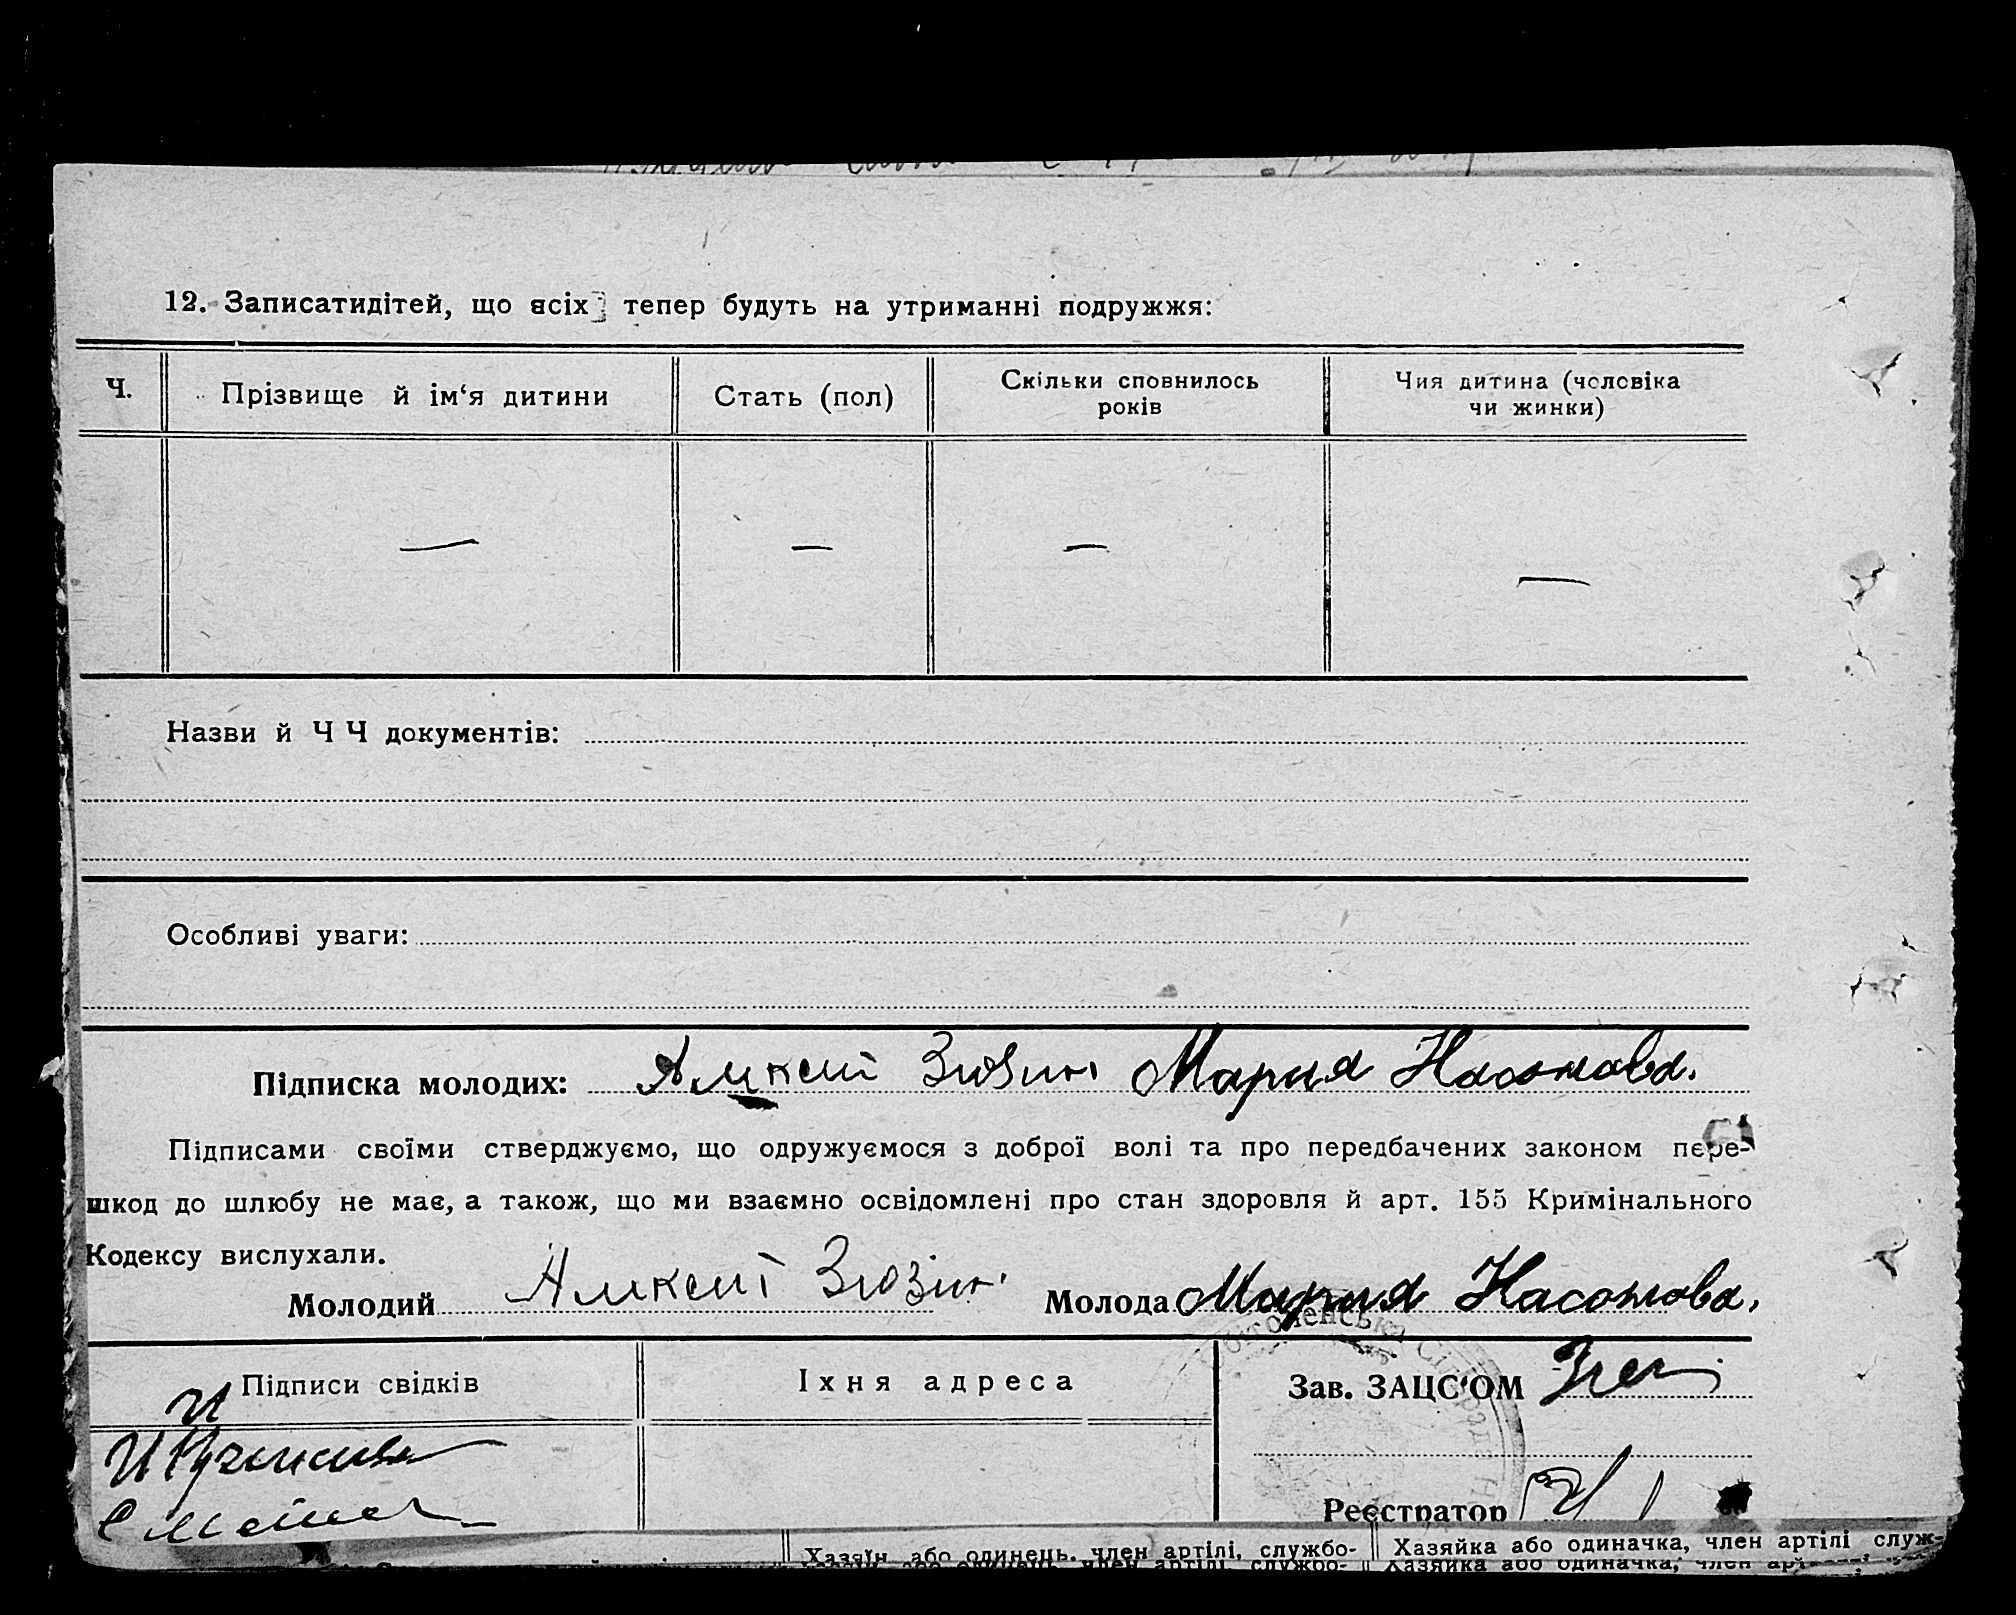 12. Записатидітей, що всіх тепер будуть на утриманні подружжя:
Ч.
Прізвище й ім‘я дитини
Стать (пол)
Скільки сповнилось
років
Чия дитина (чоловіка
чи жинки)
— — — —
Назви й Ч Ч документів:
Особливі уваги:
Підписка молодих: Алнксий Зюзин Мария Насонова.
Підписами своїми стверджуємо, що одружуємося з доброї волі та про передбачених законом пере-
шкод до шлюбу не має, а також, що ми взаємно освідомлені про стан здоровля й арт. 155 Кримінального
Кодексу вислухали.
Молодий Зюзин Молода Мария Насонова.
Підписи свідків
Їхня адреса
Зав. ЗАЦС‘ОМ
Реєстратор
Хазяїн або одинець, член артілі, службо-
Хазяйка або одиначка, член артілі служ-